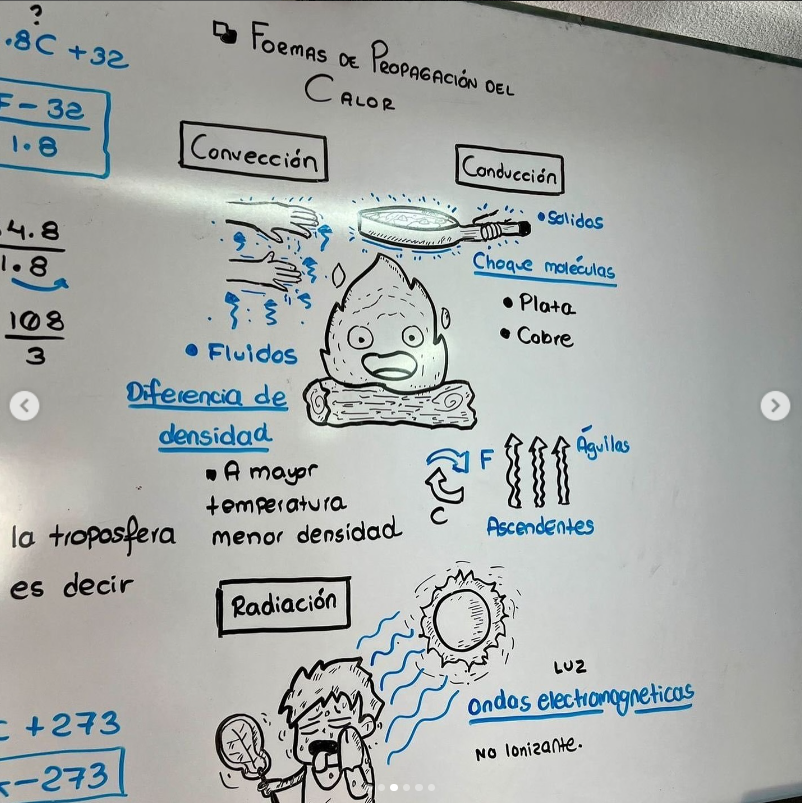 ?
.8C + 32
F - 32
1.8
4.8
1.8
108
3
la troposfera
es decir
+ 273
- 273
Formas de Propagación del
Calor
Convección
Fluidos
Diferencia de
densidad
A mayor
temperatura
menor densidad
Conducción
Solidos
Choque moléculas
Plata
Cobre
F
C
Águilas
Ascendentes
Radiación
LUZ
ondas electromagneticas
No Ionizante.